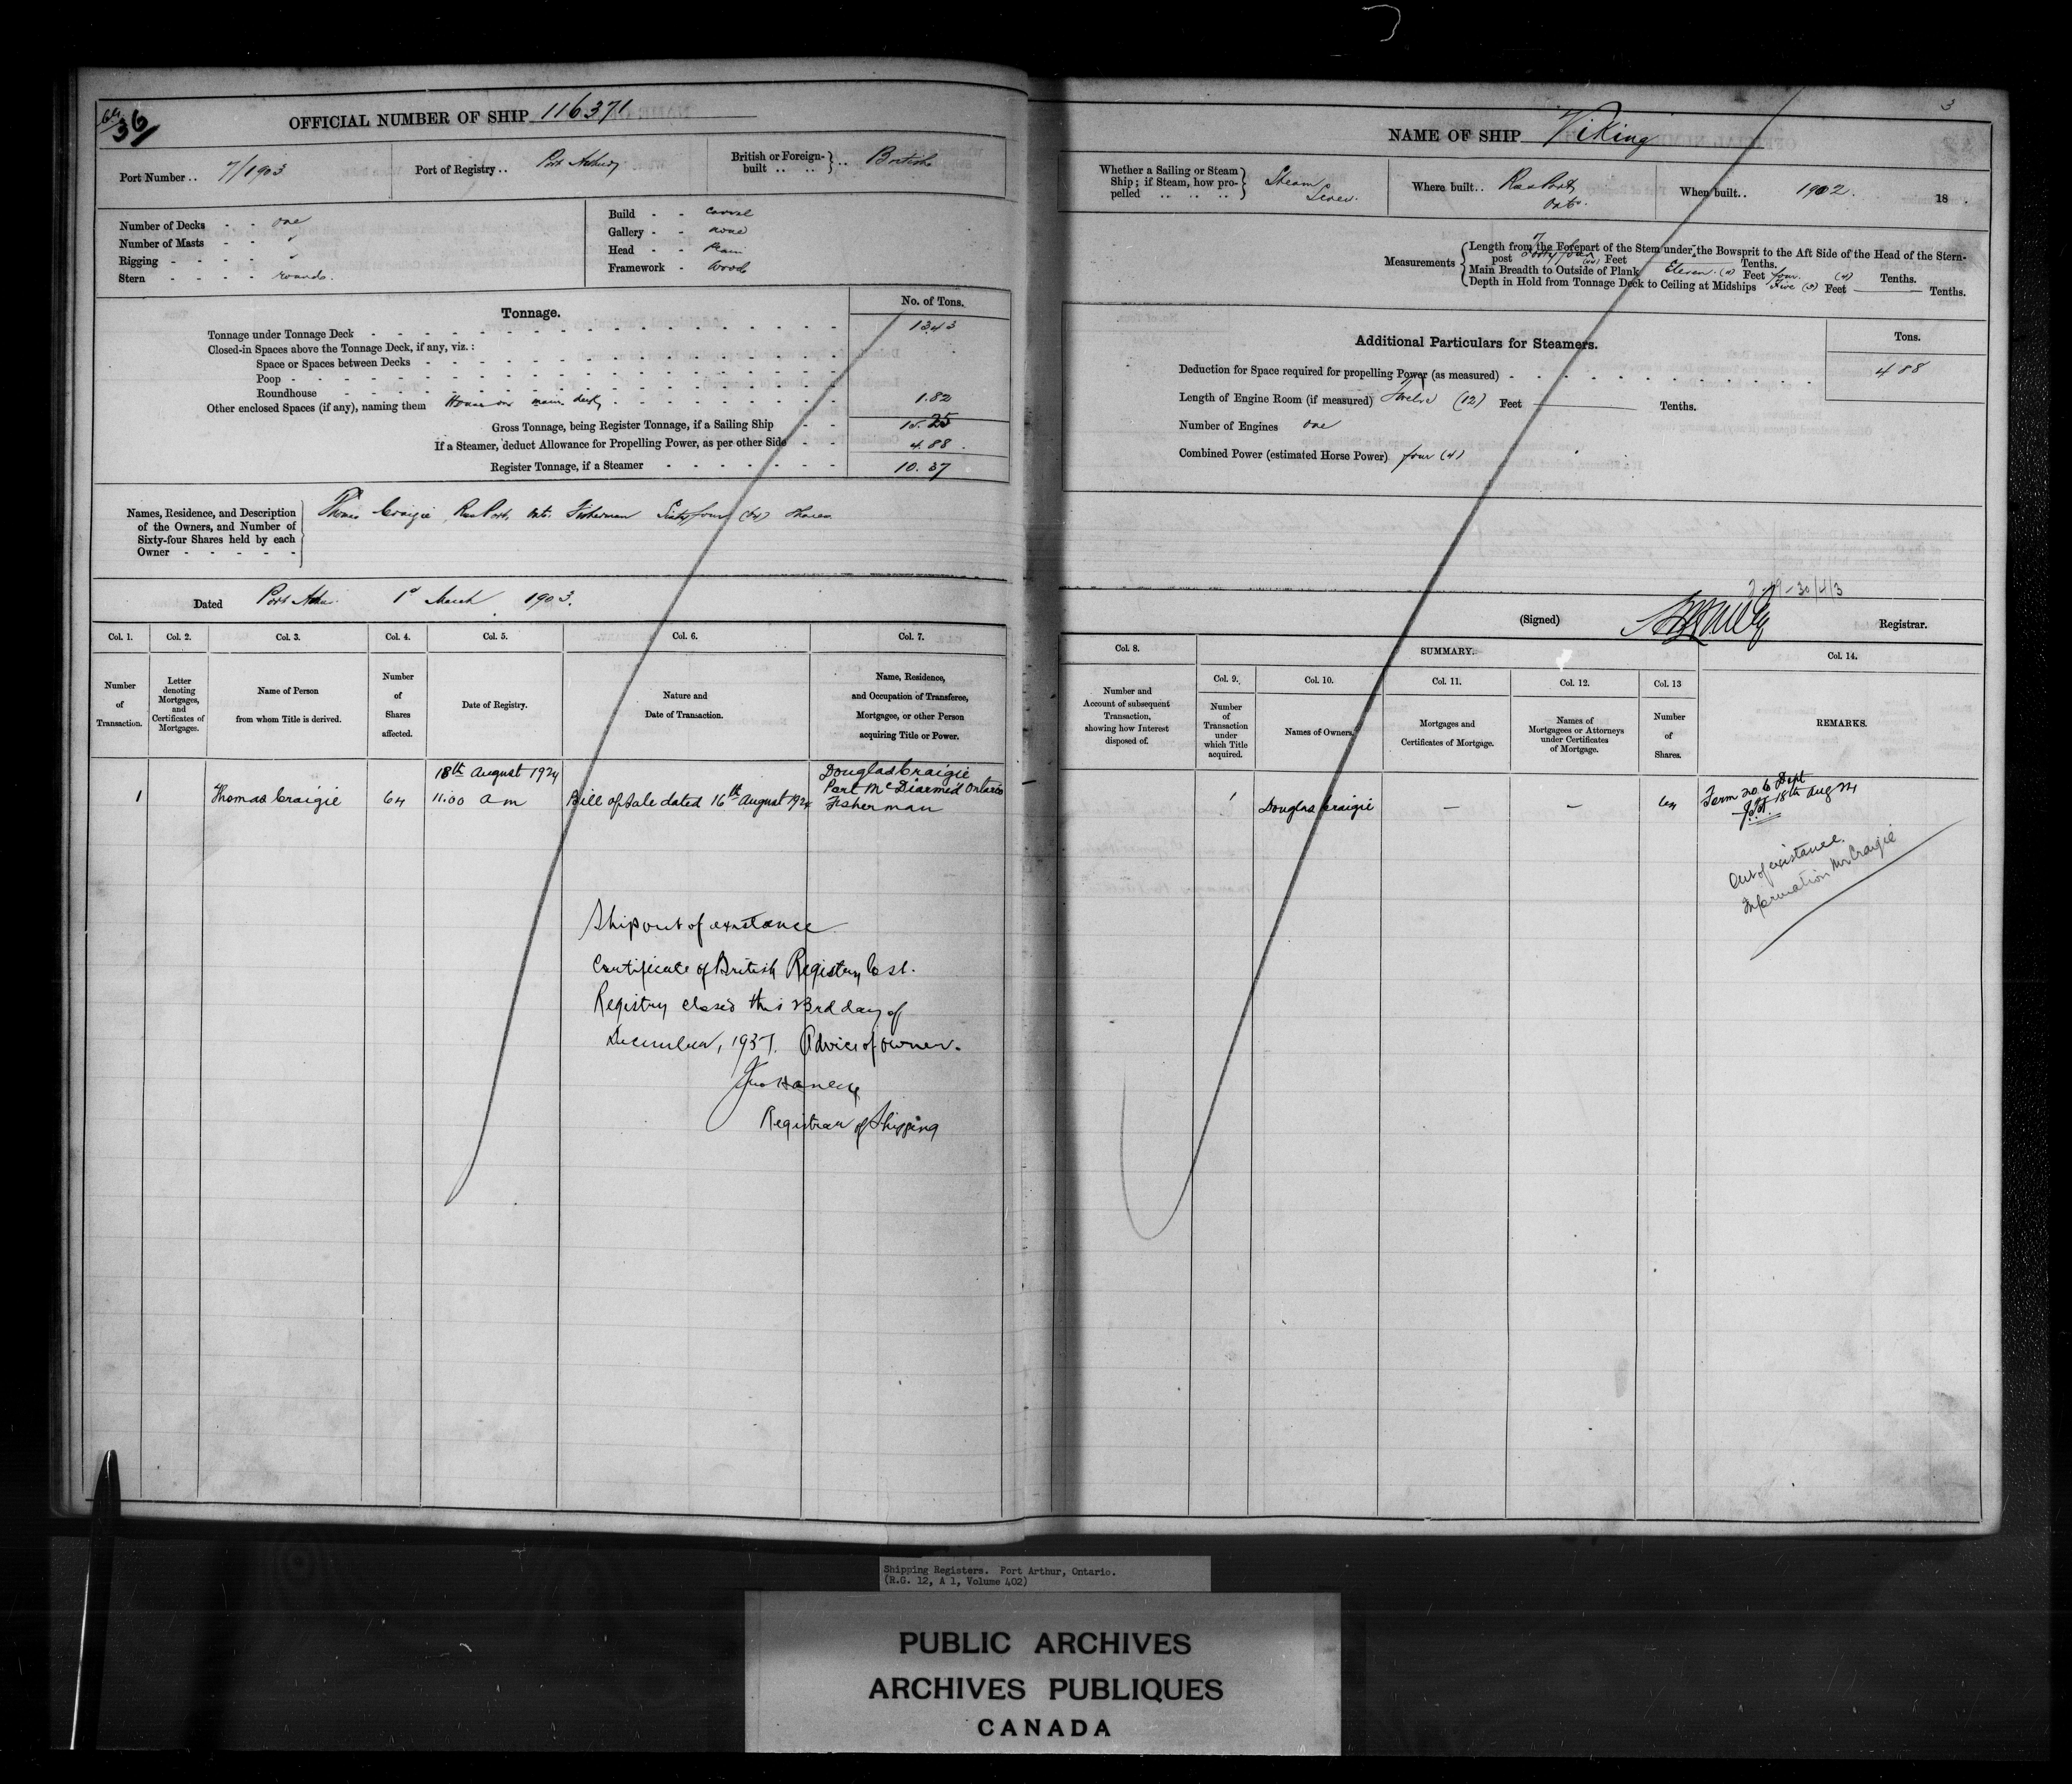 36
OFFICIAL NUMBER OF SHIP 116371
Port Number .. 7/1903
Port of Registry .. Port Arthur
British or Foreign-built .. .. } .. British
Number of Decks - - one
Number of Masts - - "
Rigging - - - - "
Stern - - - - round
Build - - Carvel
Gallery - - none
Head - - Plain
Framework - Wood
Tonnage.
No. of Tons.
Tonnage under Tonnage Deck 13.43
Closed-in Spaces above the Tonnage Deck, if any, viz. :
Space or Spaces between Decks
Poop
Roundhouse
Other enclosed Spaces (if any), naming them House on main deck 1.82
Gross Tonnage, being Register Tonnage, if a Sailing Ship 15.25
If a Steamer, deduct Allowance for Propelling Power, as per other Side 4.88
Register Tonnage, if a Steamer 10.37
Names, Residence, and Description
of the Owners, and Number of
Sixty-four Shares held by each
Owner
Thomas Craigie, Ross Port, Ont. Fisherman Sixty four (64) Shares
Dated Port Arthur 1st March 1903.
Col. 1. Col. 2. Col. 3. Col. 4. Col. 5. Col. 6. Col. 7.
Number of Transaction.
Letter denoting Mortgages, and Certificates of Mortgages.
Name of Person from whom Title is derived.
Number of Shares affected.
Date of Registry.
Nature and Date of Transaction.
Name, Residence, and Occupation of Transferee, Mortgagee, or other Person acquiring Title or Power.
1
Thomas Craigie
64
18th August 1924
11.00 a m
Bill of Sale dated 16th August 1924
Douglas Craigie
Port McDiarmid Ontario
Fisherman
Ship out of existance
Certificate of British Registry lost.
Registry closed this 23rd day of
December, 1937. Advice of owner.
Registrar of Shipping
3
NAME OF SHIP Viking
Whether a Sailing or Steam
Ship ; if Steam, how pro-
pelled .. .. ..
Steam
Screw.
Where built .. Ross Port,
Ont.
When built .. 1902. 18
Measurements
Length from the Forepart of the Stem under the Bowsprit to the Aft Side of the Head of the Stern-
post Forty four (44) Feet Tenths.
Main Breadth to Outside of Plank Eleven (11) Feet four (4) Tenths.
Depth in Hold from Tonnage Deck to Ceiling at Midships Five (5) Feet Tenths.
Additional Particulars for Steamers.
Tons.
Deduction for Space required for propelling Power (as measured) 4.88
Length of Engine Room (if measured) Twelve (12) Feet Tenths.
Number of Engines one
Combined Power (estimated Horse Power) four (4)
(Signed) Registrar.
Col. 8.
SUMMARY.
Col. 14.
Col. 9. Col. 10. Col. 11. Col. 12. Col. 13
Number and Account of subsequent Transaction, showing how Interest disposed of.
Number of Transaction under which Title acquired.
Names of Owners.
Mortgages and Certificates of Mortgage.
Names of Mortgagees or Attorneys under Certificates of Mortgage.
Number of Shares.
REMARKS.
1
Douglas Craigie
—
—
64
Form No. 6 Dept
18th Aug 24
Out of existance.
Information Mr Craigie
Shipping Registers. Port Arthur, Ontario.
(R.G. 12, A 1, Volume 402)
PUBLIC ARCHIVES
ARCHIVES PUBLIQUES
CANADA